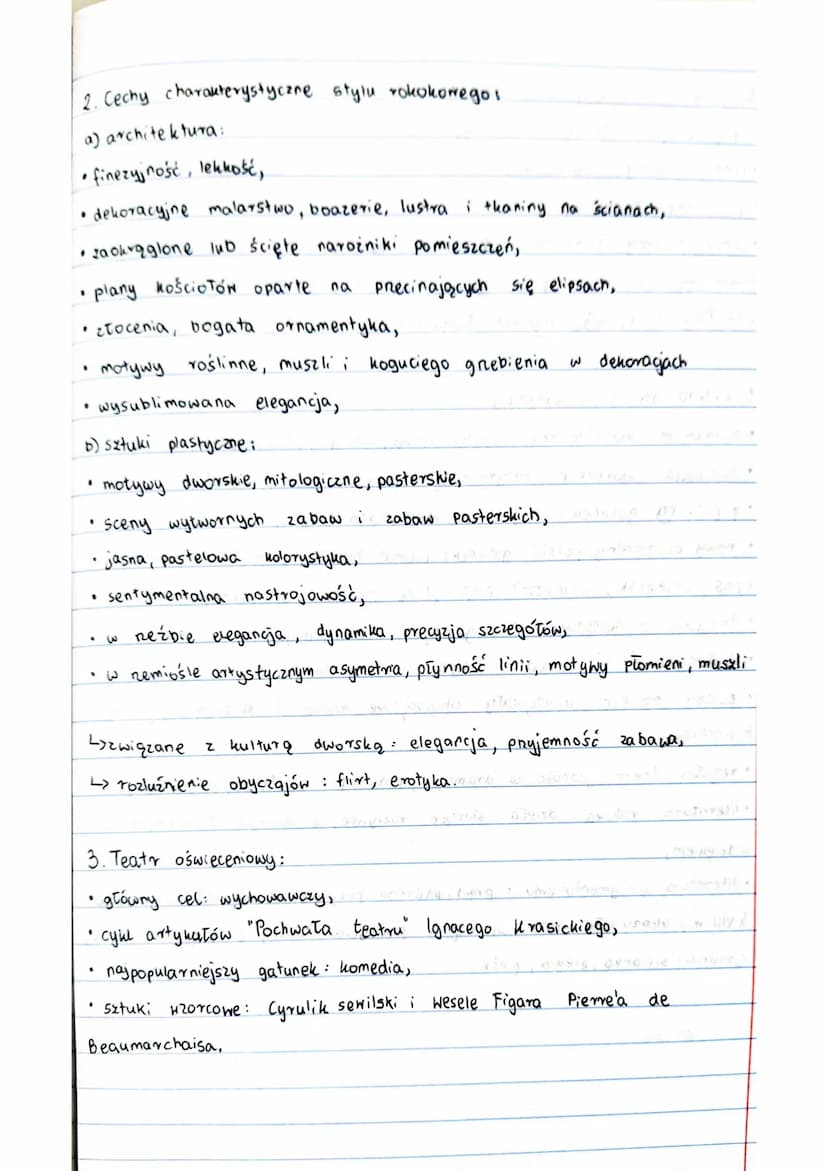 2. Cechy charakterystyczne stylu rokokowego:
a) architektura:
• finezyjność, lekkość,
• dekoracyjne malarstwo, boazerie, lustra i tkaniny na ścianach,
• zaokrąglone lub ścięte narożniki pomieszczeń,
• plany kościołów oparte na przecinających się elipsach,
• złocenia, bogata ornamentyka,
• motywy roślinne, muszli i koguciego grzebienia w dekoracjach
• wysublimowana elegancja,
b) sztuki plastyczne:
• motywy dworskie, mitologiczne, pasterskie,
• sceny wytwornych zabaw i zabaw pasterskich,
• jasna, pastelowa kolorystyka,
• sentymentalna nastrojowość,
• w rzeźbie elegancja, dynamika, precyzja szczegółów,
• w rzemiośle artystycznym asymetria, płynność linii, motywy płomieni, muszli
↳ związane z kulturą dworską: elegancja, przyjemność zabawa,
↳ rozluźnienie obyczajów: flirt, erotyka.
3. Teatr oświeceniowy:
• główny cel: wychowawczy,
• cykl artykułów "Pochwała teatru" Ignacego Krasickiego,
• najpopularniejszy gatunek: komedia,
• sztuki wzorcowe: Cyrulik sewilski i Wesele Figara Pierre'a de
Beaumarchaisa.